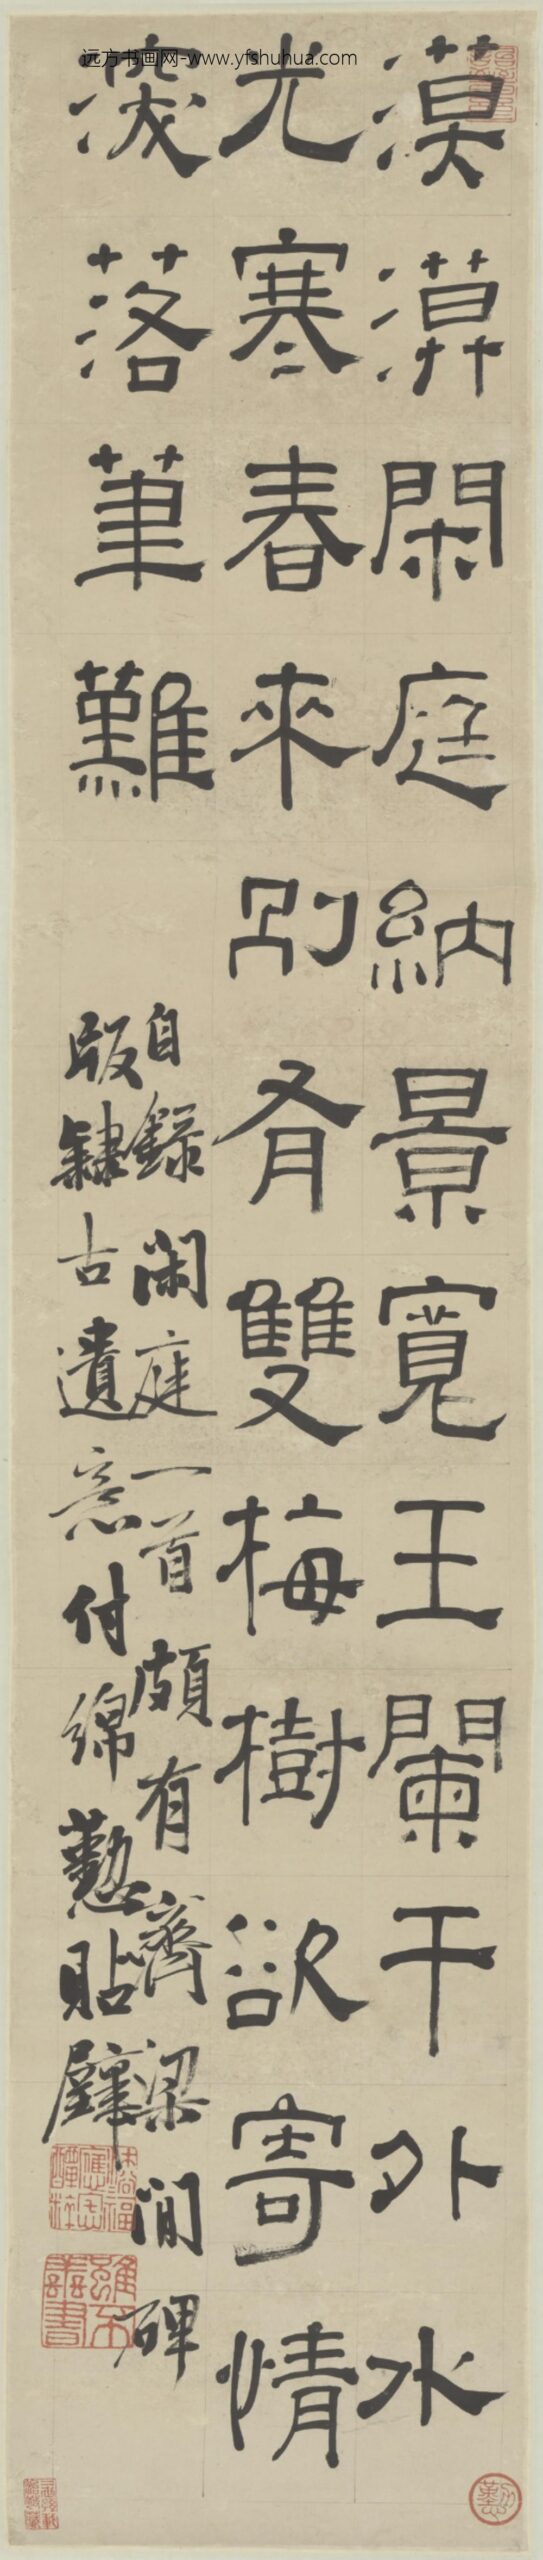 远方书画网-www.yfshuhua.com
漠漠閑庭納景寬王闌干外水
光寒春來別有雙梅樹欲寄情
深落筆難
自錄閑庭一首頗有齊梁間碑
版隸古遺意付綿懃貼壁